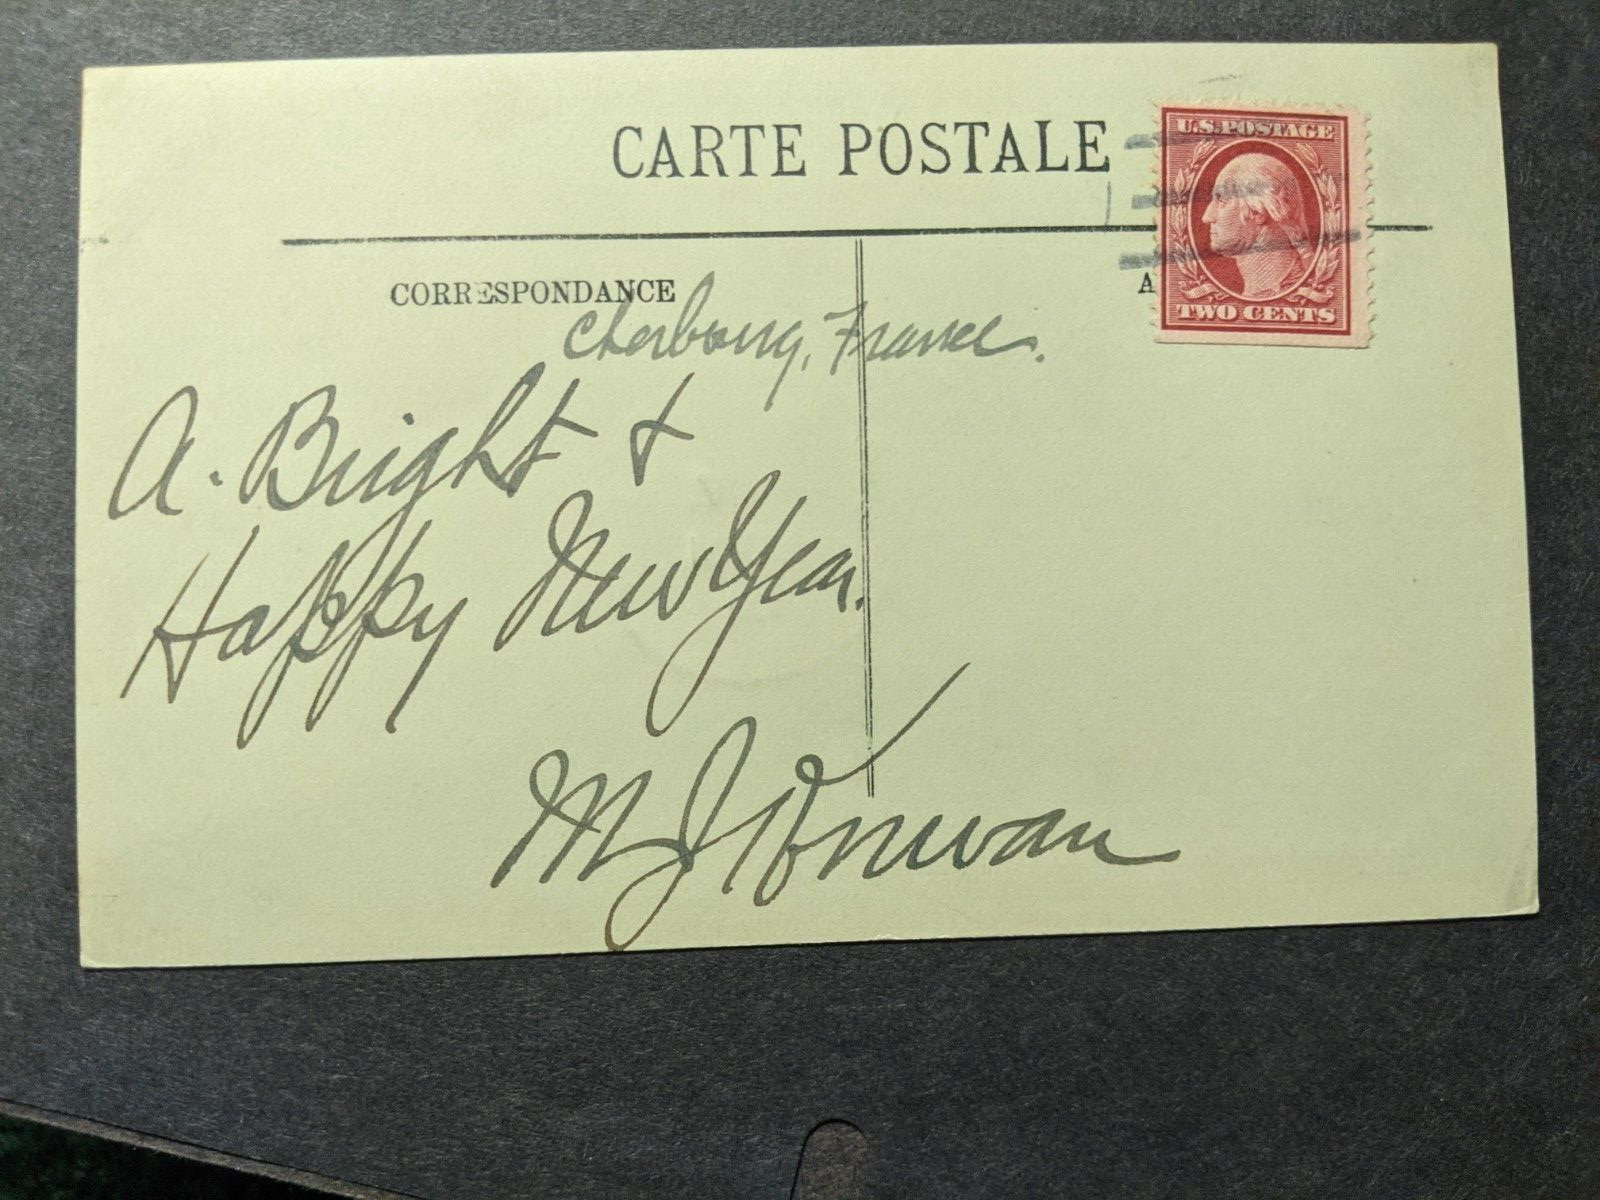 CARTE POSTALE
U.S. POSTAGE
TWO CENTS
CORRESPONDANCE
A
Cherbourg, France.
A. Bright &
Happy New Year.
M J